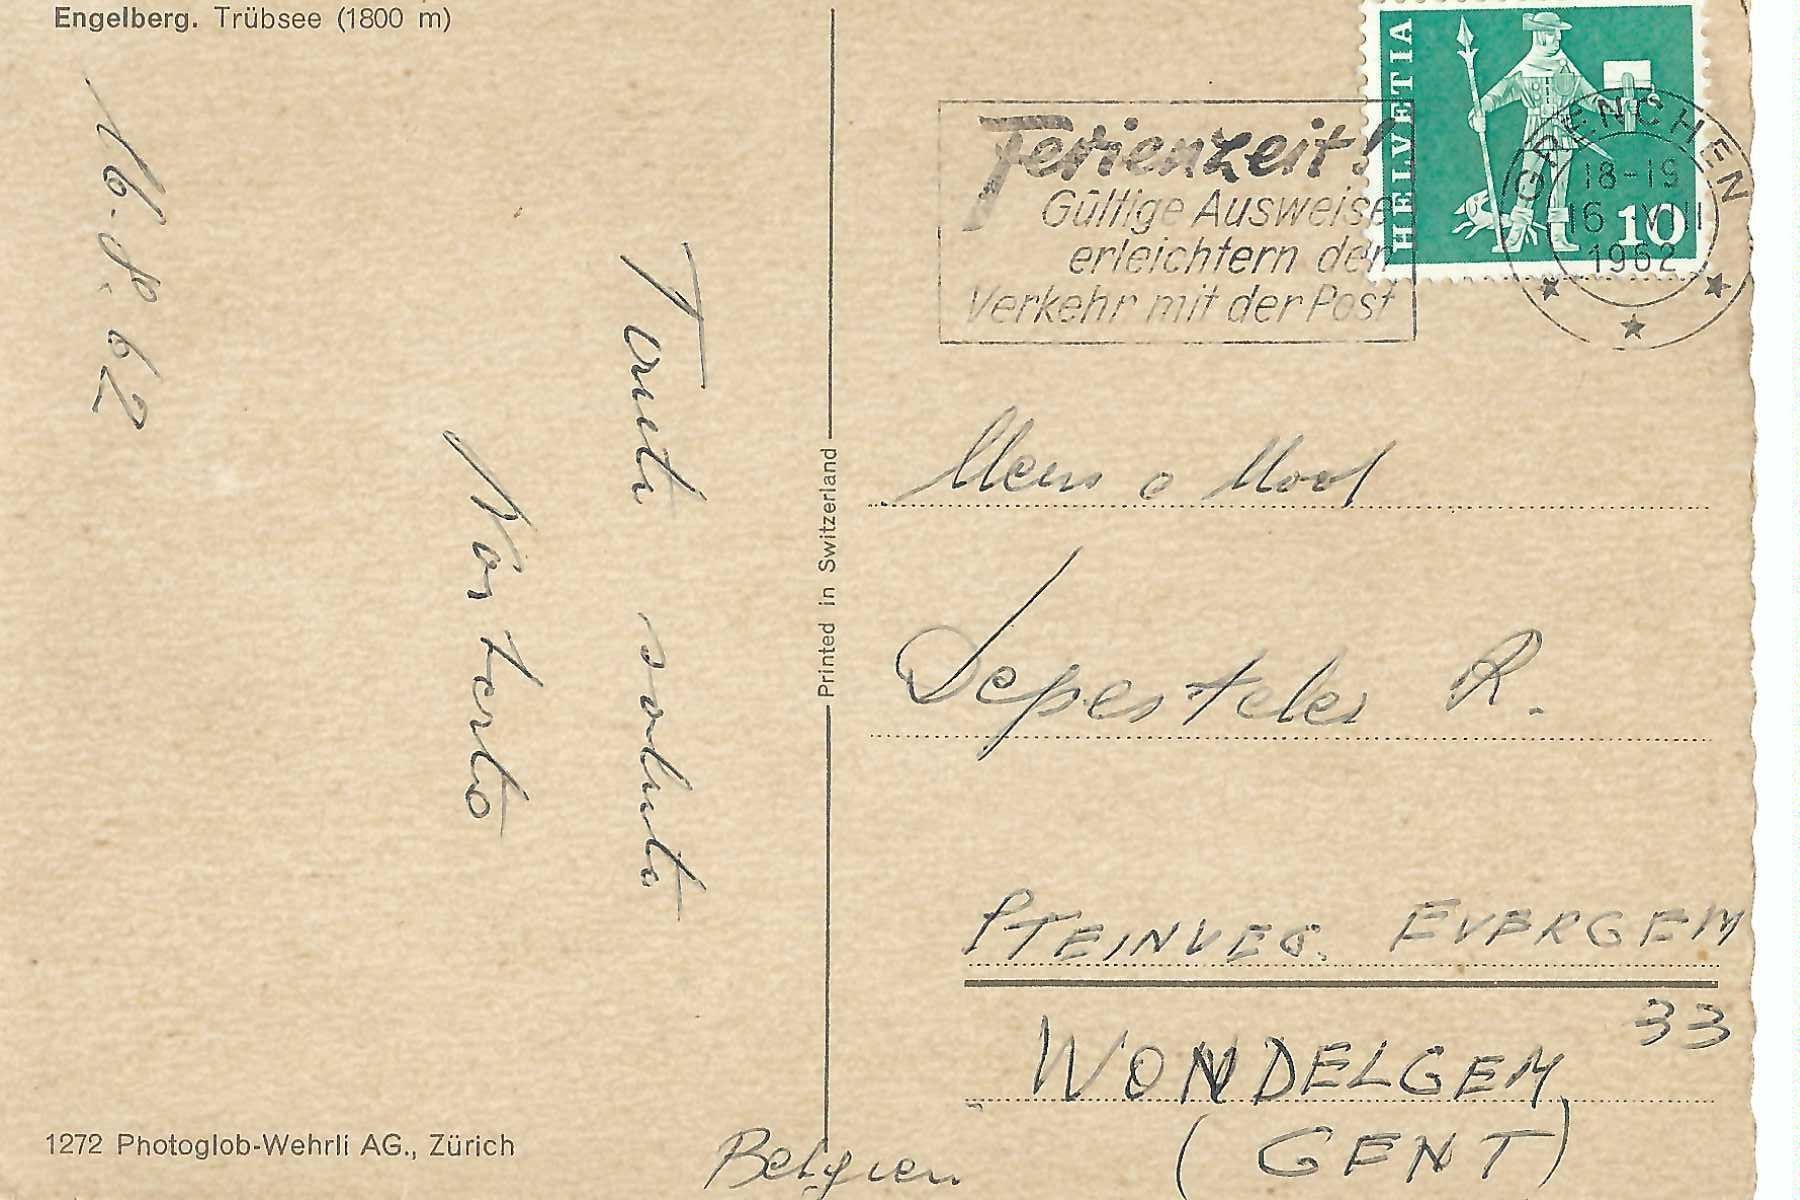 Engelberg. Trübsee (1800 m)
16.8.62
Tanti saluti
Norberto
1272 Photoglob-Wehrli AG., Zürich
Printed in Switzerland
Ferienzeit!
Gültige Ausweise
erleichtern den
Verkehr mit der Post
HELVETIA
10
GRENCHEN
18-19
16 VIII
1962
Depesteler R.
STEINVEG. EVERGEM
33
WONDELGEM
(GENT)
Belgien